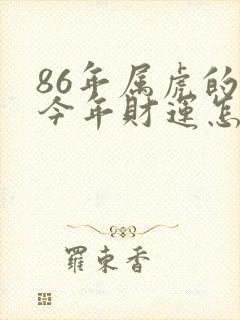 86年属虎的
今年财运怎
羅東香